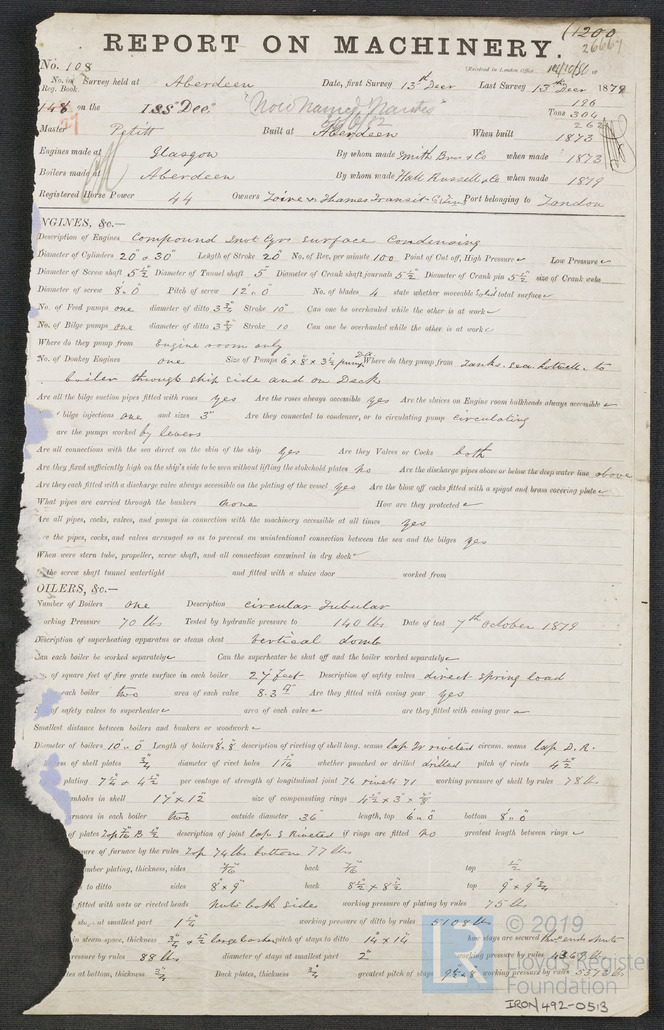 (1200
REPORT ON MACHINERY.
26667
No. 108
(Received in London Office
No. in Survey held at Aberdeen Date, first Survey 13th Decr Last Survey 1879
Reg. Book.
148 on the ISS "Dee" "Now Named Nantes"
196
Tons 304
262
Master Petitt Built at Aberdeen When built 1873
Engines made at Glasgow By whom made Smith Bros & Co when made 1873
Boilers made at Aberdeen By whom made Hall Russell & Co when made 1879
Registered Horse Power 44 Owners Loire & Thames Transit Port belonging to London
ENGINES, &c.—
Description of Engines Compound Invt Cyrs Surface Condensing
Diameter of Cylinders 20" & 30" Length of Stroke 20" No. of Rev. per minute 100 Point of Cut off, High Pressure Low Pressure
Diameter of Screw shaft 5 1/2" Diameter of Tunnel shaft 5" Diameter of Crank shaft journals 5 1/2" Diameter of Crank pin 5 1/2" size of Crank webs
Diameter of screw 8'.0" Pitch of screw 12'.0" No. of blades 4 state whether moveable solid total surface
No. of Feed pumps one diameter of ditto 3 3/8" Stroke 10" Can one be overhauled while the other is at work
No. of Bilge pumps one diameter of ditto 3 3/8" Stroke 10 Can one be overhauled while the other is at work
Where do they pump from Engine room only
No. of Donkey Engines one Size of Pumps 6" x 8" x 3 1/2" pump Where do they pump from Tanks. sea. hotwell. to
boiler through ship side and on Deck
Are all the bilge suction pipes fitted with roses yes Are the roses always accessible yes Are the sluices on Engine room bulkheads always accessible
bilge injections one and sizes 3" Are they connected to condenser, or to circulating pump circulating
are the pumps worked by levers
Are all connections with the sea direct on the skin of the ship yes Are they Valves or Cocks both
Are they fixed sufficiently high on the ship's side to be seen without lifting the stokehold plates no Are the discharge pipes above or below the deep water line above
Are they each fitted with a discharge valve always accessible on the plating of the vessel yes Are the blow off cocks fitted with a spigot and brass covering plate
What pipes are carried through the bunkers none How are they protected
Are all pipes, cocks, valves, and pumps in connection with the machinery accessible at all times yes
the pipes, cocks, and valves arranged so as to prevent an unintentional connection between the sea and the bilges yes
When were stern tube, propeller, screw shaft, and all connections examined in dry dock
the screw shaft tunnel watertight and fitted with a sluice door worked from
OILERS, &c.—
Number of Boilers one Description circular Tubular
orking Pressure 70 lbs Tested by hydraulic pressure to 140 lbs Date of test 7th October 1879
Description of superheating apparatus or steam chest vertical domb
Can each boiler be worked separately Can the superheater be shut off and the boiler worked separately
of square feet of fire grate surface in each boiler 27 feet Description of safety valves direct spring load
each boiler two area of each valve 8.3 Are they fitted with easing gear yes
of safety valves to superheater area of each valve are they fitted with easing gear
Smallest distance between boilers and bunkers or woodwork
Diameter of boilers 10.0" Length of boilers 8'.8" description of riveting of shell long. seams lap Tr riveted circum. seams lap D.R.
ss of shell plates 3/4" diameter of rivet holes 1 1/16" whether punched or drilled drilled pitch of rivets 4 1/2"
plating 7 1/4 & 4 1/2" per centage of strength of longitudinal joint 76 rivets 71 working pressure of shell by rules 78 lbs
nholes in shell 17" x 12" size of compensating rings 4 1/2" x 3"
rnaces in each boiler two outside diameter 36" length, top 6'.0" bottom 8'.0"
of plates Top 7/16 B 1/2" description of joint lap S Riveted if rings are fitted no greatest length between rings
sure of furnace by the rules Top 74 lbs bottom 77 lbs
mber plating, thickness, sides 7/16" back 7/16" top 1/2"
to ditto sides 8" x 9" back 8 1/2" x 8 1/2" top 9" x 9 3/4"
fitted with nuts or riveted heads nuts both side working pressure of plating by rules 75 lbs
at smallest part 1 1/4" working pressure of ditto by rules 5108 lbs
in steam space, thickness 3/4" & 1/2" pitch of stays to ditto 14" x 14" how stays are secured
essure by rules 88 lbs diameter of stays at smallest part 2" working pressure by rules 4369 lbs
tes at bottom, thickness 3/4" Back plates, thickness 3/4" greatest pitch of stays working pressure by rules
© 2019
Lloyd's Register
Foundation
IRON492-0513